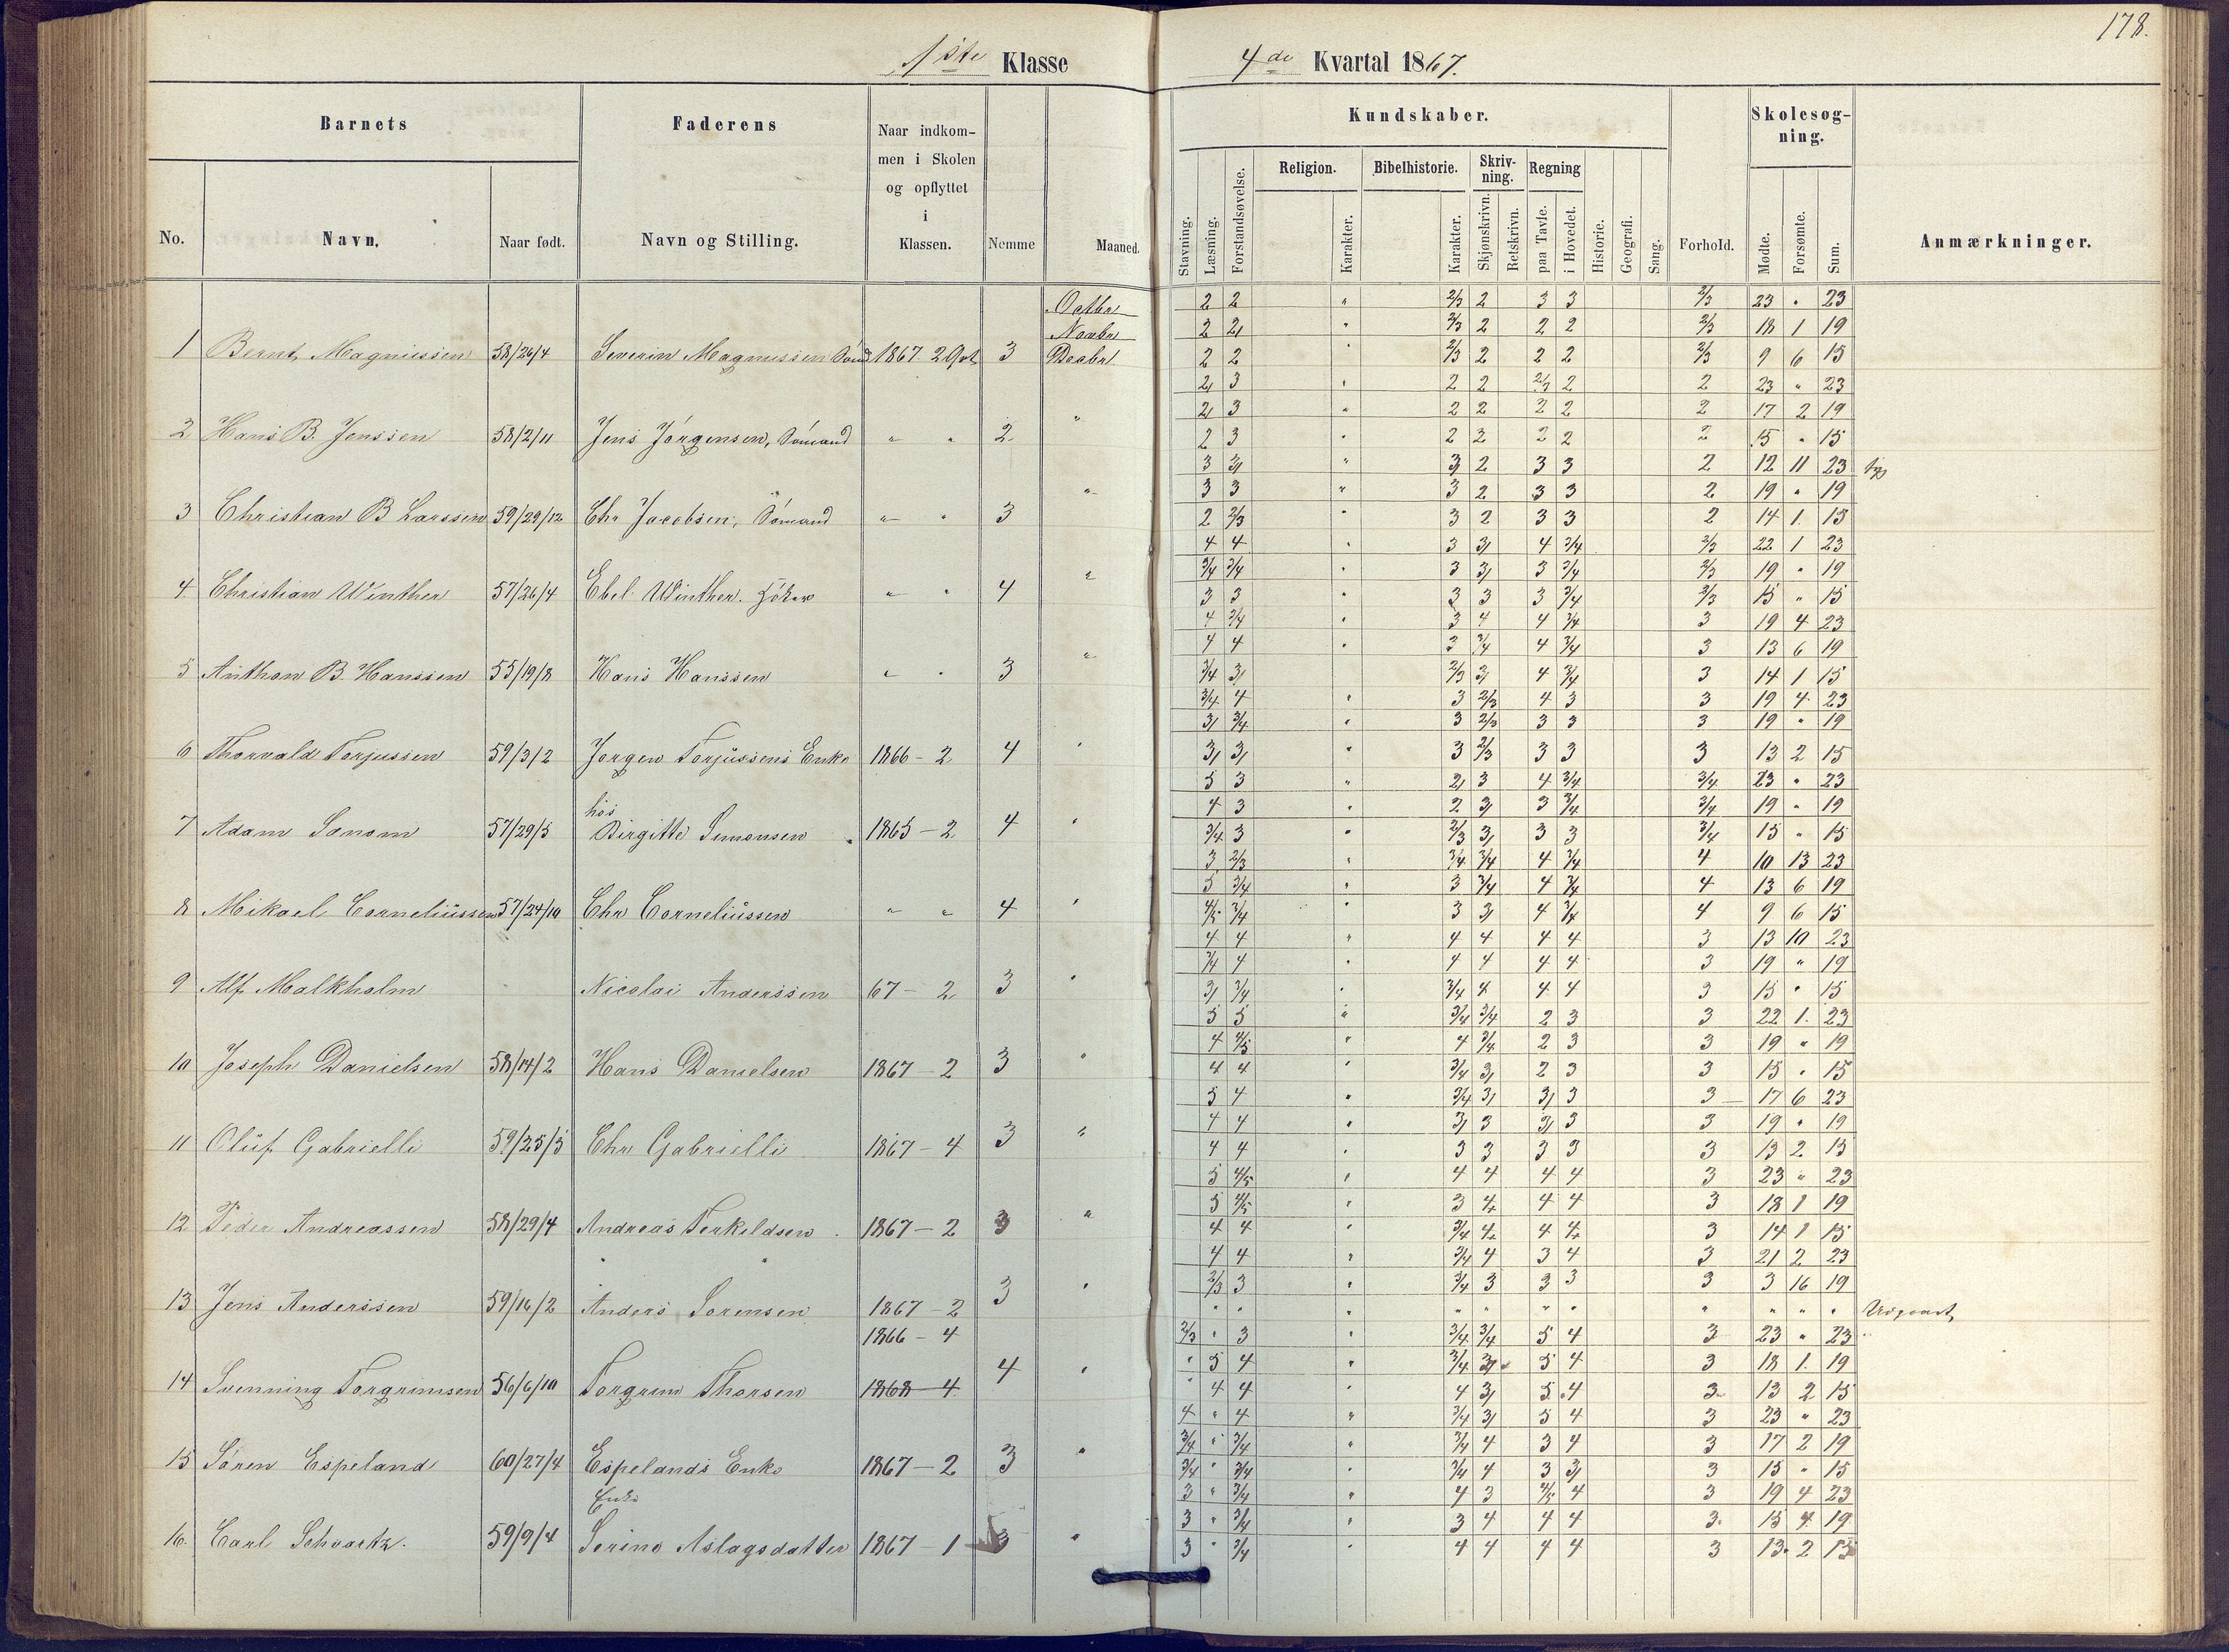 178.
1ste Klasse
4de Kvartal 1867.
Barnets
Faderens
Naar indkom-
men i Skolen
og opflyttet
i
Klassen.
Nemme
Maaned.
No.
Navn.
Naar født.
Navn og Stilling.
Kundskaber.
Skolesøg-
ning.
Religion.
Bibelhistorie.
Skriv-
ning.
Regning
Stavning.
Læsning.
Forstandsøvelse.
Karakter.
Karakter.
Skjønskrivn.
Retskrivn.
paa Tavle.
i Hovedet.
Historie.
Geografi.
Sang.
Forhold.
Mødte.
Forsømte.
Sum.
Anmærkninger.
Octbr 2 2 " 2/3 2 3 3 2/3 23 " 23
Novbr 2 2 " 2/3 2 2 2 2/3 18 1 19
1 Bernt Magnussen 58/26/4 Severin Magnussen 1867 2 Qvt 3 Decbr 2 2 " 2/3 2 2 2 2/3 9 6 15
2 3 " 2 2 2/3 2 2 23 " 23
2 3 " 2 2 2 2 2 17 2 19
2 Hans B. Jenssen 58/2/11 Jens Jørgensen, Sømand " " 2 " 2 3 " 2 2 2 2 2 15 " 15
3 3 " 3 2 3 3 2 12 11 23
3 3 " 3 2 3 3 2 19 " 19
3 Christian B Larssen 59/29/12 Chr Jacobsen, Sømand " " 3 " 2 2/3 " 3 2 3 3 2 14 1 15
4 4 " 3 3 4 3/4 2/3 22 1 23
3/4 3/4 " 3 3 3 3/4 2/3 19 " 19
4 Christian Winther 57/26/4 Ebel Winther. " " 4 " 3 3 " 3 3 3 3/4 2/3 15 " 15
4 3/4 " 3 4 4 3/4 3 19 4 23
4 4 " 3 3/4 4 3/4 3 13 6 19
5 Anthon B. Hanssen 55/19/8 Hans Hanssen " " 3 " 3/4 3 2/3 3 4 3/4 3 14 1 15
3/4 4 " 3 2/3 4 3 3 19 4 23
3 3/4 " 3 2/3 3 3 3 19 " 19
6 Thorvald Torjussen 59/3/2 Jørgen Torjussens Enke 1866 - 2 4 " 3 3 " 3 2/3 3 3 3 13 2 15
5 3 " 2 3 4 3/4 3/4 23 " 23
4 3 " 2 3 3 3/4 3/4 19 " 19
hos
7 Adam Sonom 57/29/5 Birgitte Simonsen 1865 - 2 4 " 3/4 3 " 2/3 3 3 3 3/4 15 " 15
3 2/3 " 3/4 3/4 4 3/4 4 10 13 23
5 3/4 " 3 3/4 4 3/4 4 13 6 19
8 Mikael Corneliussen 57/24/10 Chr Corneliussen " " 4 " 4/5 3/4 " 3 3 4 3/4 4 9 6 15
4 4 " 4 4 4 4 3 13 10 23
3/4 4 " 4 4 4 4 3 19 " 19
9 Alf Malkholm Nicolai Anderssen 67 - 2 3 " 3 3/4 3/4 4 4 4 3 15 " 15
5 5 " 3/4 3/4 2 3 3 22 1. 23
4 4/5 " 4 3/4 2 3 3 19 " 19
10 Joseph Danielsen 58/14/2 Hans Danielsen 1867 - 2 3 " 4 4 " 3/4 3 2 3 3 15 " 15
5 4 " 3/4 3 3 3 3 17 6 23
4 4 " 3 3 3 3 3 19 " 19
11 Oluf Gabrielli 59/25/5 Chr Gabrielli 1867 - 4 3 " 4 4 " 3 3 3 3 3 13 2 15
5 4/5 " 4 4 4 4 3 23 " 23
5 4/5 " 3 4 4 4 3 18 1 19
12 Peder Andreassen 58/29/4 Andreas Terkeldsen 1867 - 2 3 " 4 4 " 3/4 4 4 4 3 14 1 15
4 4 " 3/4 4 3 4 3 21 2 23
2/3 3 " 3/4 3 3 3 3 3 16 19
13 Jens Anderssen 59/16/2 Anders Sorensen 1867 - 2 3 " " " " " " " " " " " " Udgaaet
1866 - 4 2/3 " 3 " 3/4 3/4 5 4 3 23 " 23
" 5 4 " 3/4 3 5 4 3 18 1. 19
14 Svenning Torgrimsen 56/6/10 Torgrim Thorsen 1868 - 4 4 " " 4 4 " 4 3 5 4 3 13 2 15
4 " 4 " 3/4 3 5 4 3 23 " 23
3/4 " 3/4 " 3/4 4 3 4 3 17 2 19
15 Søren Espeland 60/27/4 Espelands Enke 1867 - 2 3 " 3/4 " 3/4 " 3/4 4 3 3 3 15 " 15
Enke 3 " 3/4 " 4 3 4/5 4 3 19 4 23
3 " 3/4 " 3 4 4 4 3. 15 4 19
16. Carl Schvartz. 59/9/4 Serine Aslagsdatter 1867 - 1 3 " 3 " 3/4 " 4 4 4 4 3 13 2 15